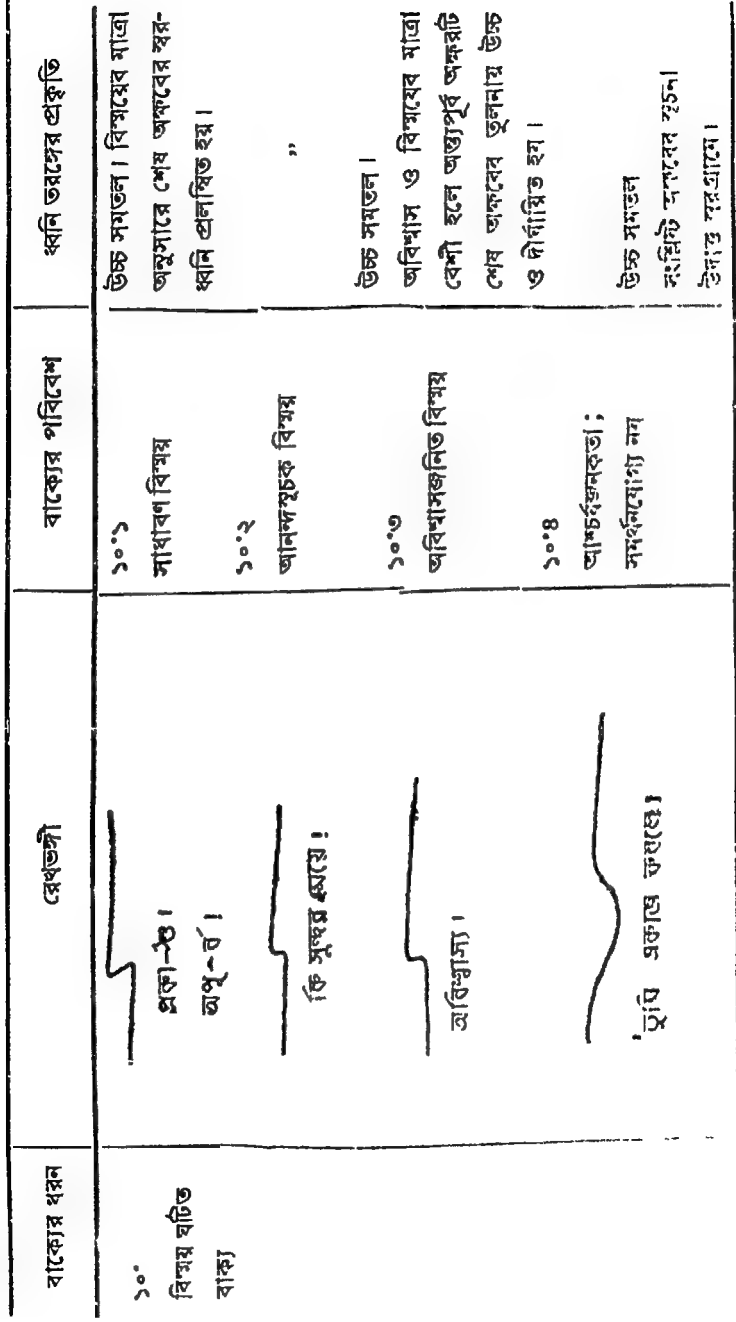 বাক্যের ধরন
রেখভঙ্গী
বাক্যের পবিবেশ
ধ্বনি তরঙ্গের প্রকৃতি
১০·
বিস্ময় ঘটিত
বাক্য
প্রকা—ণ্ড।
অপূ—র্ব।
১০·১
সাধাবণ বিস্ময়
উচ্চ সমতল। বিস্ময়েব মাত্রা
অনুসারে শেষ অক্ষবের স্বর-
ধ্বনি প্রলম্বিত হয়।
কি সুন্দর মেয়ে!
১০·২
আনন্দসূচক বিস্ময়
"
অবিশ্বাস্য।
১০·৩
অবিশ্বাসজনিত বিস্ময়
উচ্চ সমতল।
অবিশ্বাস ও বিস্ময়েব মাত্রা
বেশী হলে অন্ত্যপূর্ব অক্ষরটি
শেষ অক্ষবের তুলনায় উচ্চ
ও দীর্ঘায়িত হয়।
'তুমি একাজ করছো।
১০·৪
আশ্চর্যজনকতা;
সমর্থনযোগ্য নয়
উচ্চ সমতল
সংশ্লিষ্ট অক্ষরের সূচনা
উদাত্ত স্বরগ্রামে।